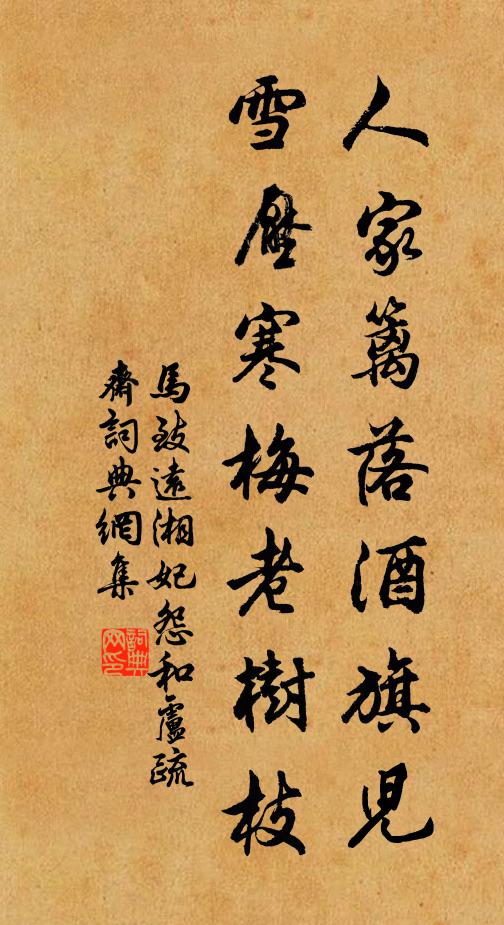 人家籬落酒旗兒
雪壓寒梅老樹枝
馬致遠湘妃怨和盧疏
齋詞典網集
詞典网印